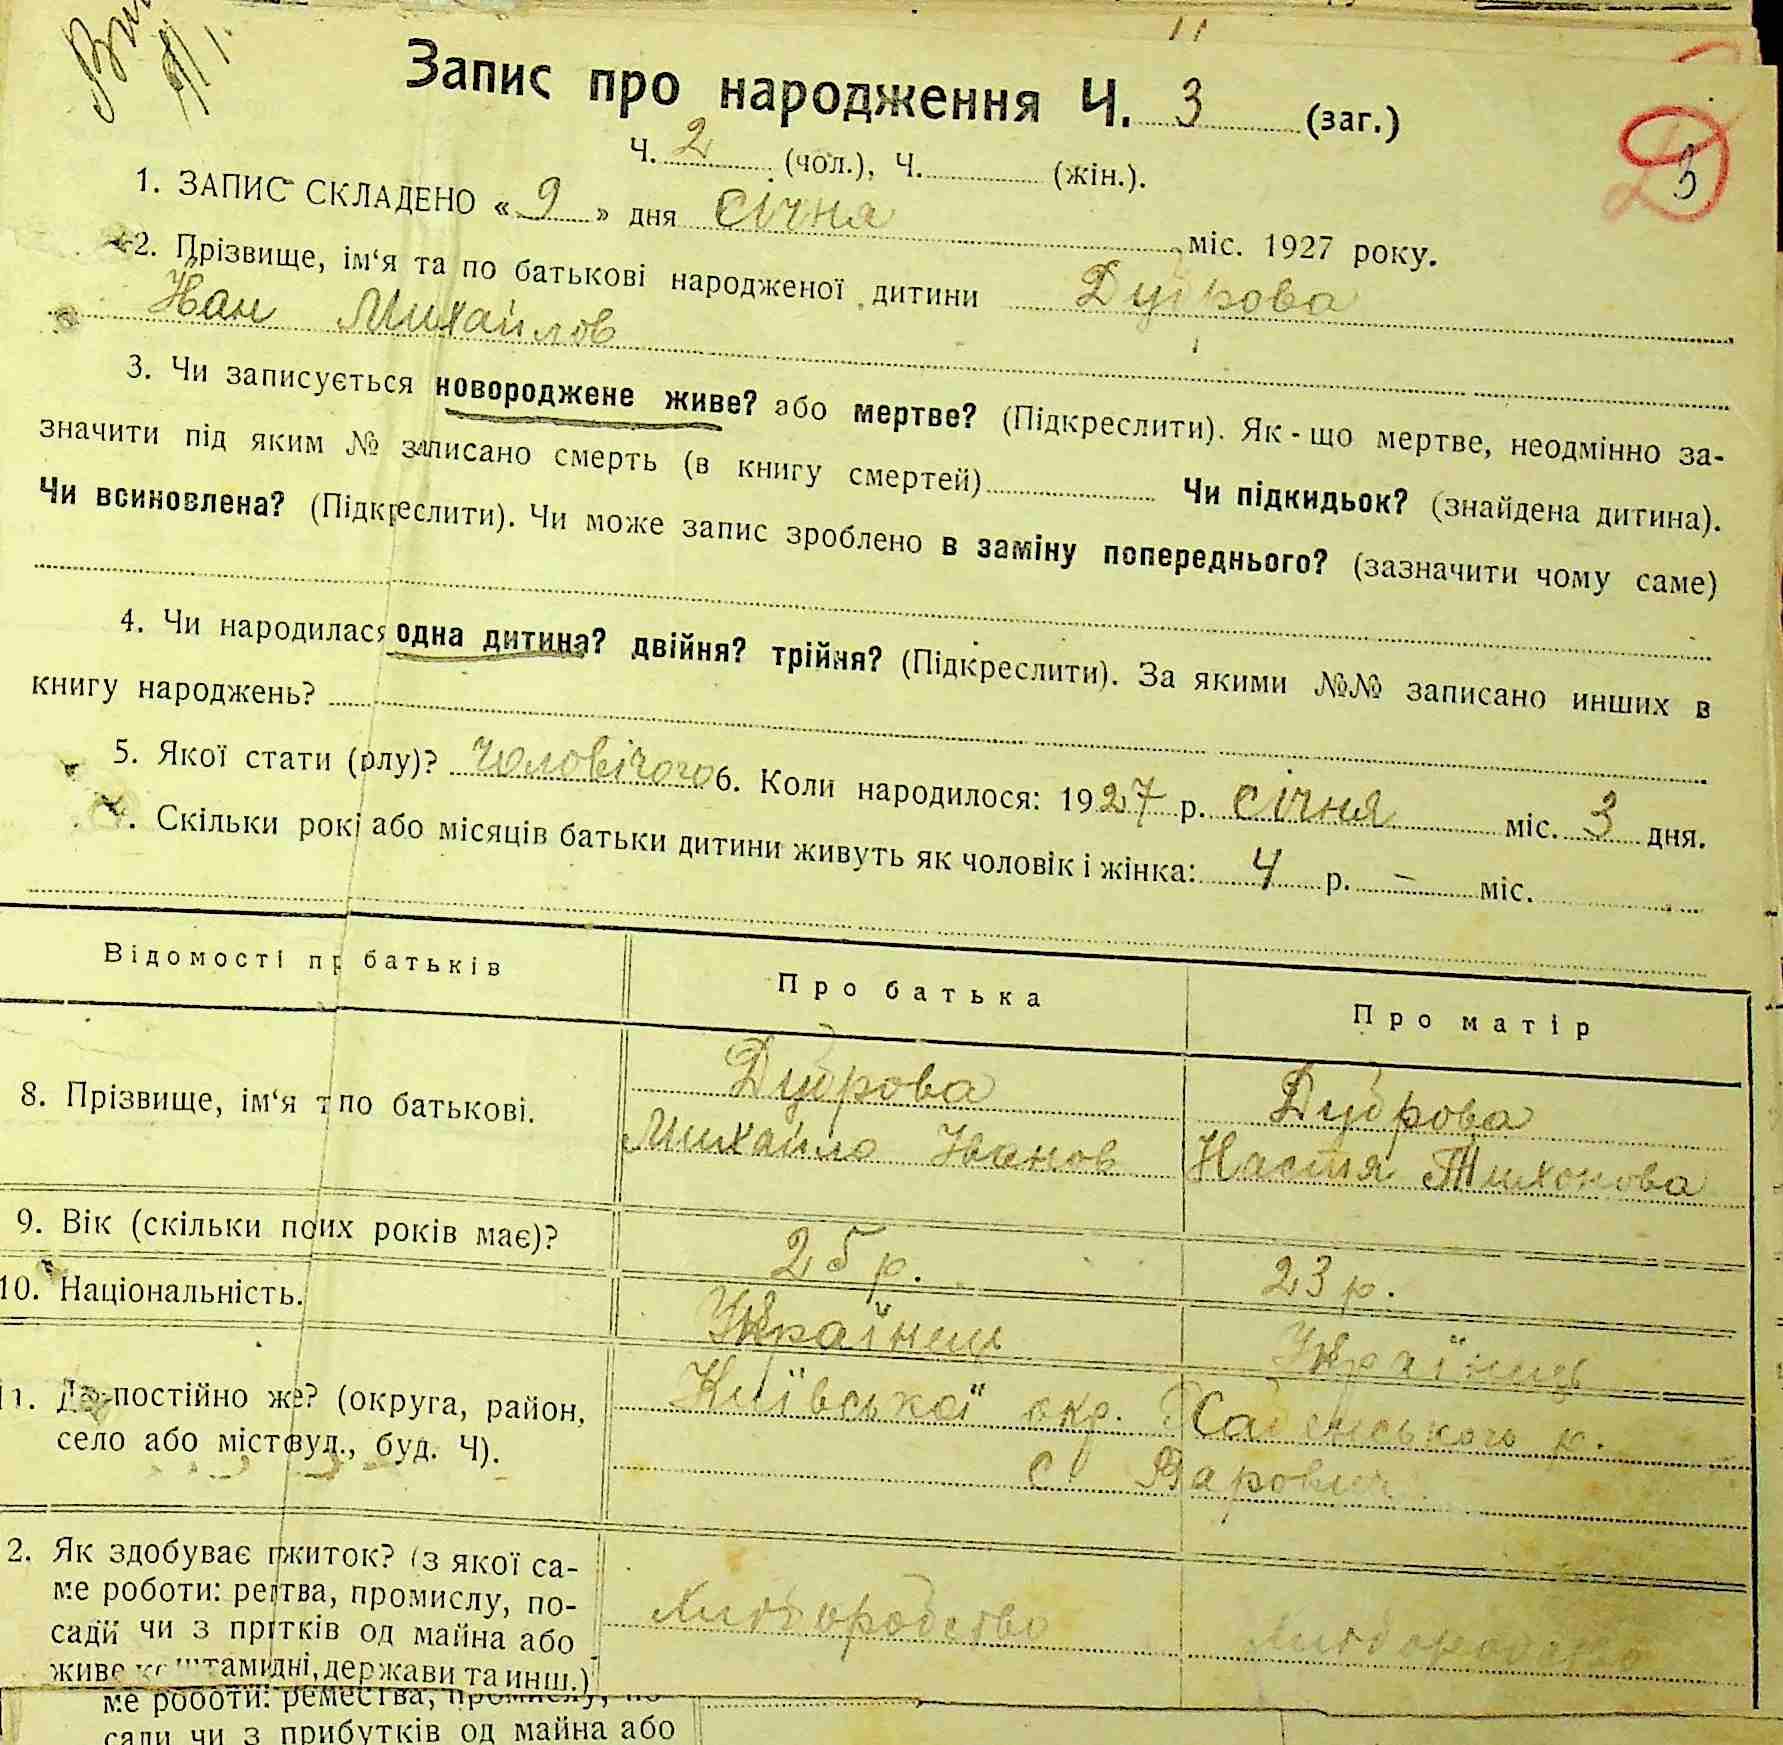 Запис про народження Ч. 3 (заг.)
3
Ч. 2 (чол.), Ч. (жін.).
1. ЗАПИС СКЛАДЕНО « 9 » дня січня міс. 1927 року.
2. Прізвище, ім‘я та по батькові народженої дитини Дуброва
Йван Михайлов
3. Чи записується новороджене живе? або мертве? (Підкреслити). Як-що мертве, неодмінно за-
значити під яким № записано смерть (в книгу смертей) Чи підкидьок? (знайдена дитина).
Чи всиновлена? (Підкреслити). Чи може запис зроблено в заміну попереднього? (зазначити чому саме)
4. Чи народилася одна дитина? двійня? трійня? (Підкреслити). За якими №№ записано инших в
книгу народжень?
5. Якої стати (полу)? чоловічого 6. Коли народилося: 1927 р. січня міс. 3 дня.
Скільки рокі або місяців батьки дитини живуть як чоловік і жінка: 4 р. – міс.
Відомості пр батьків Про батька Про матір
Дуброва Дуброва
8. Прізвище, ім‘я т по батькові.
Михайло Іванов Настя Тихонова
9. Вік (скільки по их років має)? 25 р. 23 р.
10. Національність. Українець Українець
11. Де постійно же? (округа, район, Київської окр. р.
село або міст вуд., буд. Ч). с. Варовичі
2. Як здобуває п житок? (з якої са-
ме роботи: ре тва, промислу, по- хліборобство хліборобство
сади чи з пр тків од майна або
живе коштами дні, держави та инш.)
ме роботи: ремества, промислу, по
сади чи з прибутків од майна або